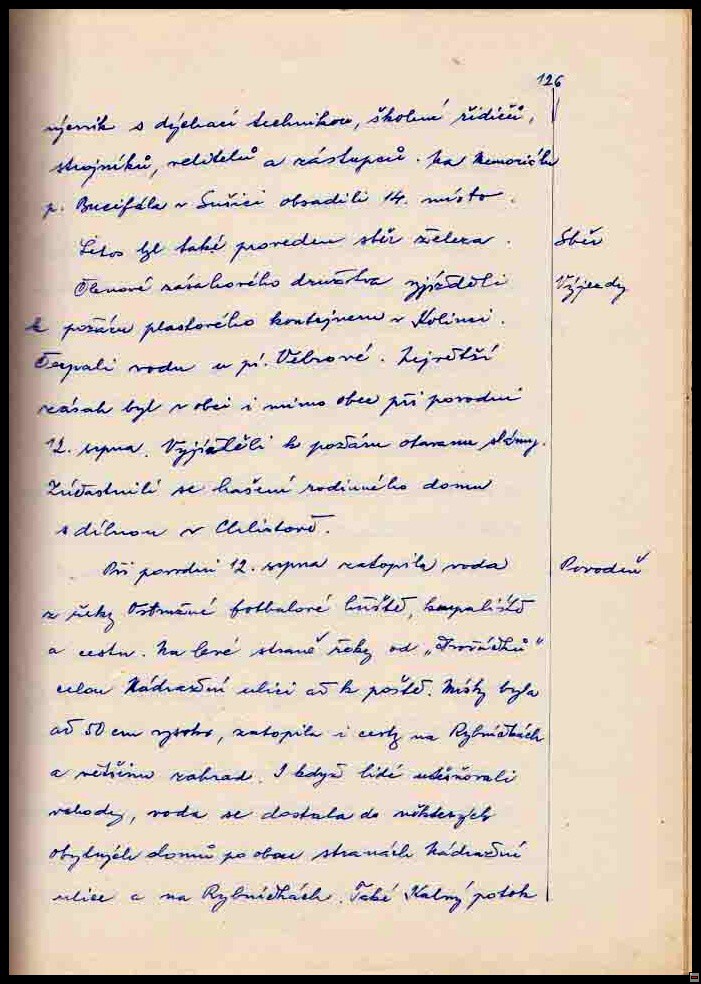 126
výcvik s dýchací technikou, školení řidičů,
strojníků, velitelů a zástupců. Na Memoriálu
p. Bucifála v Sušici obsadili 14. místo.
Letos byl také proveden sběr železa.
Sběr
Členové zásahového družstva vyjížděli
Výjezdy
k požáru plastového kontejneru v Kolinci.
Čerpali vodu u pí. Vebrové. Největší
zásah byl v obci i mimo obec při povodni
12. srpna. Vyjížděli k požáru stavanu slámy.
Zúčastnili se hašení rodinného domu
s dílnou v Chlistově.
Při povodni 12. srpna zatopila voda
Povodeň
z řeky Ostružné fotbalové hřiště, koupaliště
a cestu. Na levé straně řeky od
celou Nádražní ulici až k poště. Místy byla
až 50 cm vysoko, zatopila i cesty na Rybníčkách
a většinu zahrad. I když lidé utěsňovali
vchody, voda se dostala do některých
obytných domů po obou stranách Nádražní
ulice a na Rybníčkách. Také Kalný potok